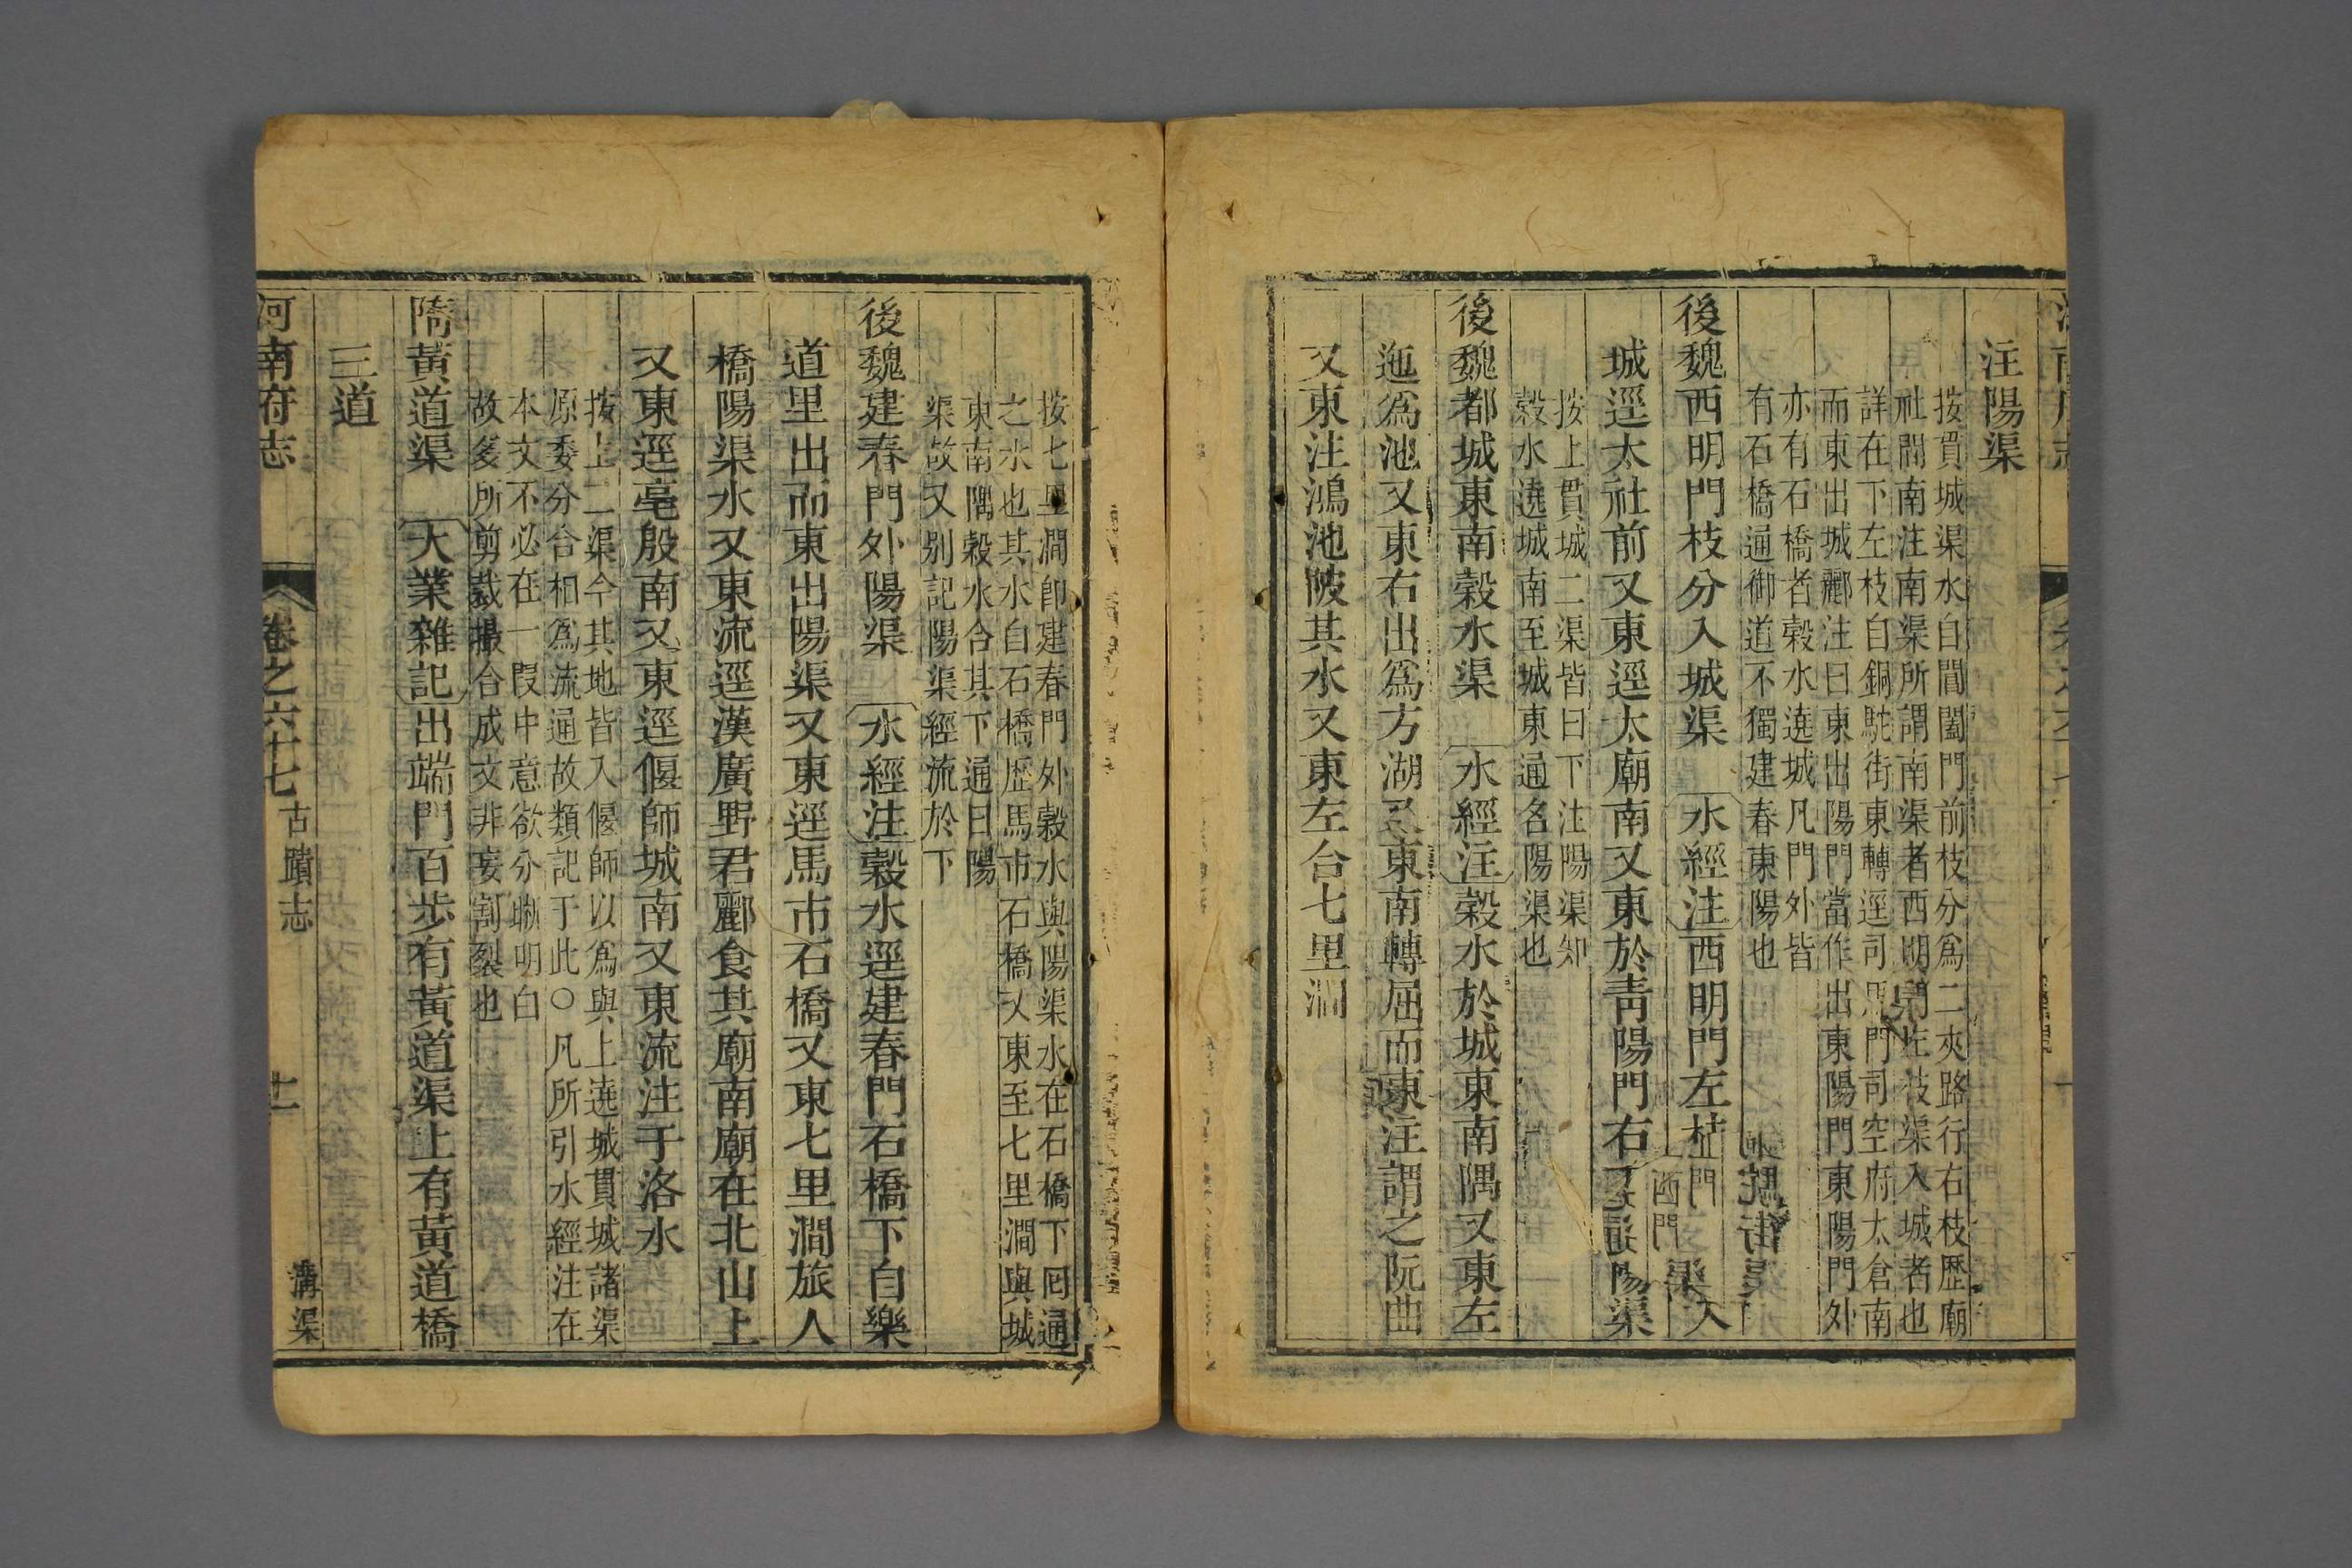 注陽渠
按貫城渠水自閶闔門前枝分爲二夾路行右枝歷廟
社間南注南渠所謂南渠者西明門左枝渠入城者也
詳在下左枝自銅駝街東轉逕司馬門司空府太倉南
而東出城酈注曰東出陽門當作出東陽門東陽門外
亦有石橋者穀水遶城凡門外皆
有石橋通御道不獨建春東陽也
後魏西明門枝分入城渠 水經注西明門左枝門入
城逕太社前又東逕太廟南又東於靑陽門右陽渠
按上貫城二渠皆曰下注陽渠知
穀水遶城南至城東通名陽渠也
後魏都城東南穀水渠 水經注穀水於城東南隅又東左
迤爲池又東右出爲方湖又東南轉屈而東注謂之阮曲
又東注鴻池陂其水又東左合七里澗
按七里澗卽建春門外穀水與陽渠水在石橋下同通
之水也其水自石橋歷馬市石橋又東至七里澗與城
東南隅穀水合其下通曰陽
渠故又別記陽渠經流於下
後魏建春門外陽渠 水經注穀水逕建春門石橋下自樂
道里出而東出陽渠又東逕馬市石橋又東七里澗旅人
橋陽渠水又東流逕漢廣野君酈食其廟南廟在北山上
又東逕亳殷南又東逕偃師城南又東流注于洛水
按上二渠今其地皆入偃師以爲與上遶城貫城諸渠
原委分合相爲流通故類記于此○凡所引水經注在
本文不必在一段中意欲分晰明白
故多所剪裁撮合成文非妄割裂也
隋黃道渠 大業雜記出端門百步有黃道渠上有黃道橋
三道
河南府志 卷之六十七 古蹟志 溝渠 十一